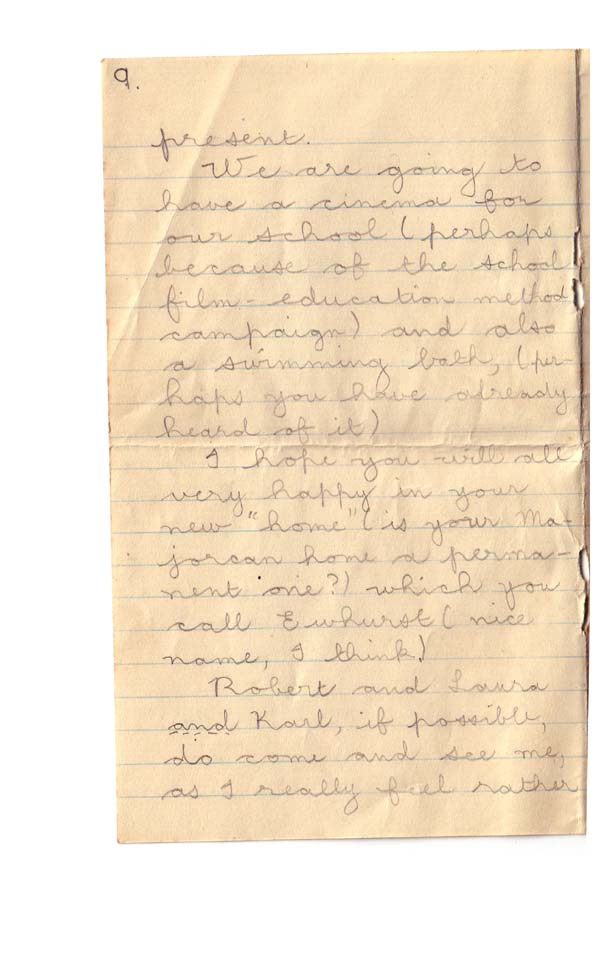 9.
present.
We are going to
have a cinema for
our school (perhaps
because of the school
film-education method
campaign) and also
a swimming bath, (per-
haps you have already
heard of it)
I hope you will all
very happy in your
new "home" (is your Ma-
jorcan home a perma-
nent one?) which you
call Ewhurst (nice
name, I think!)
Robert and Laura
and Karl, if possible,
do come and see me,
as I really feel rather